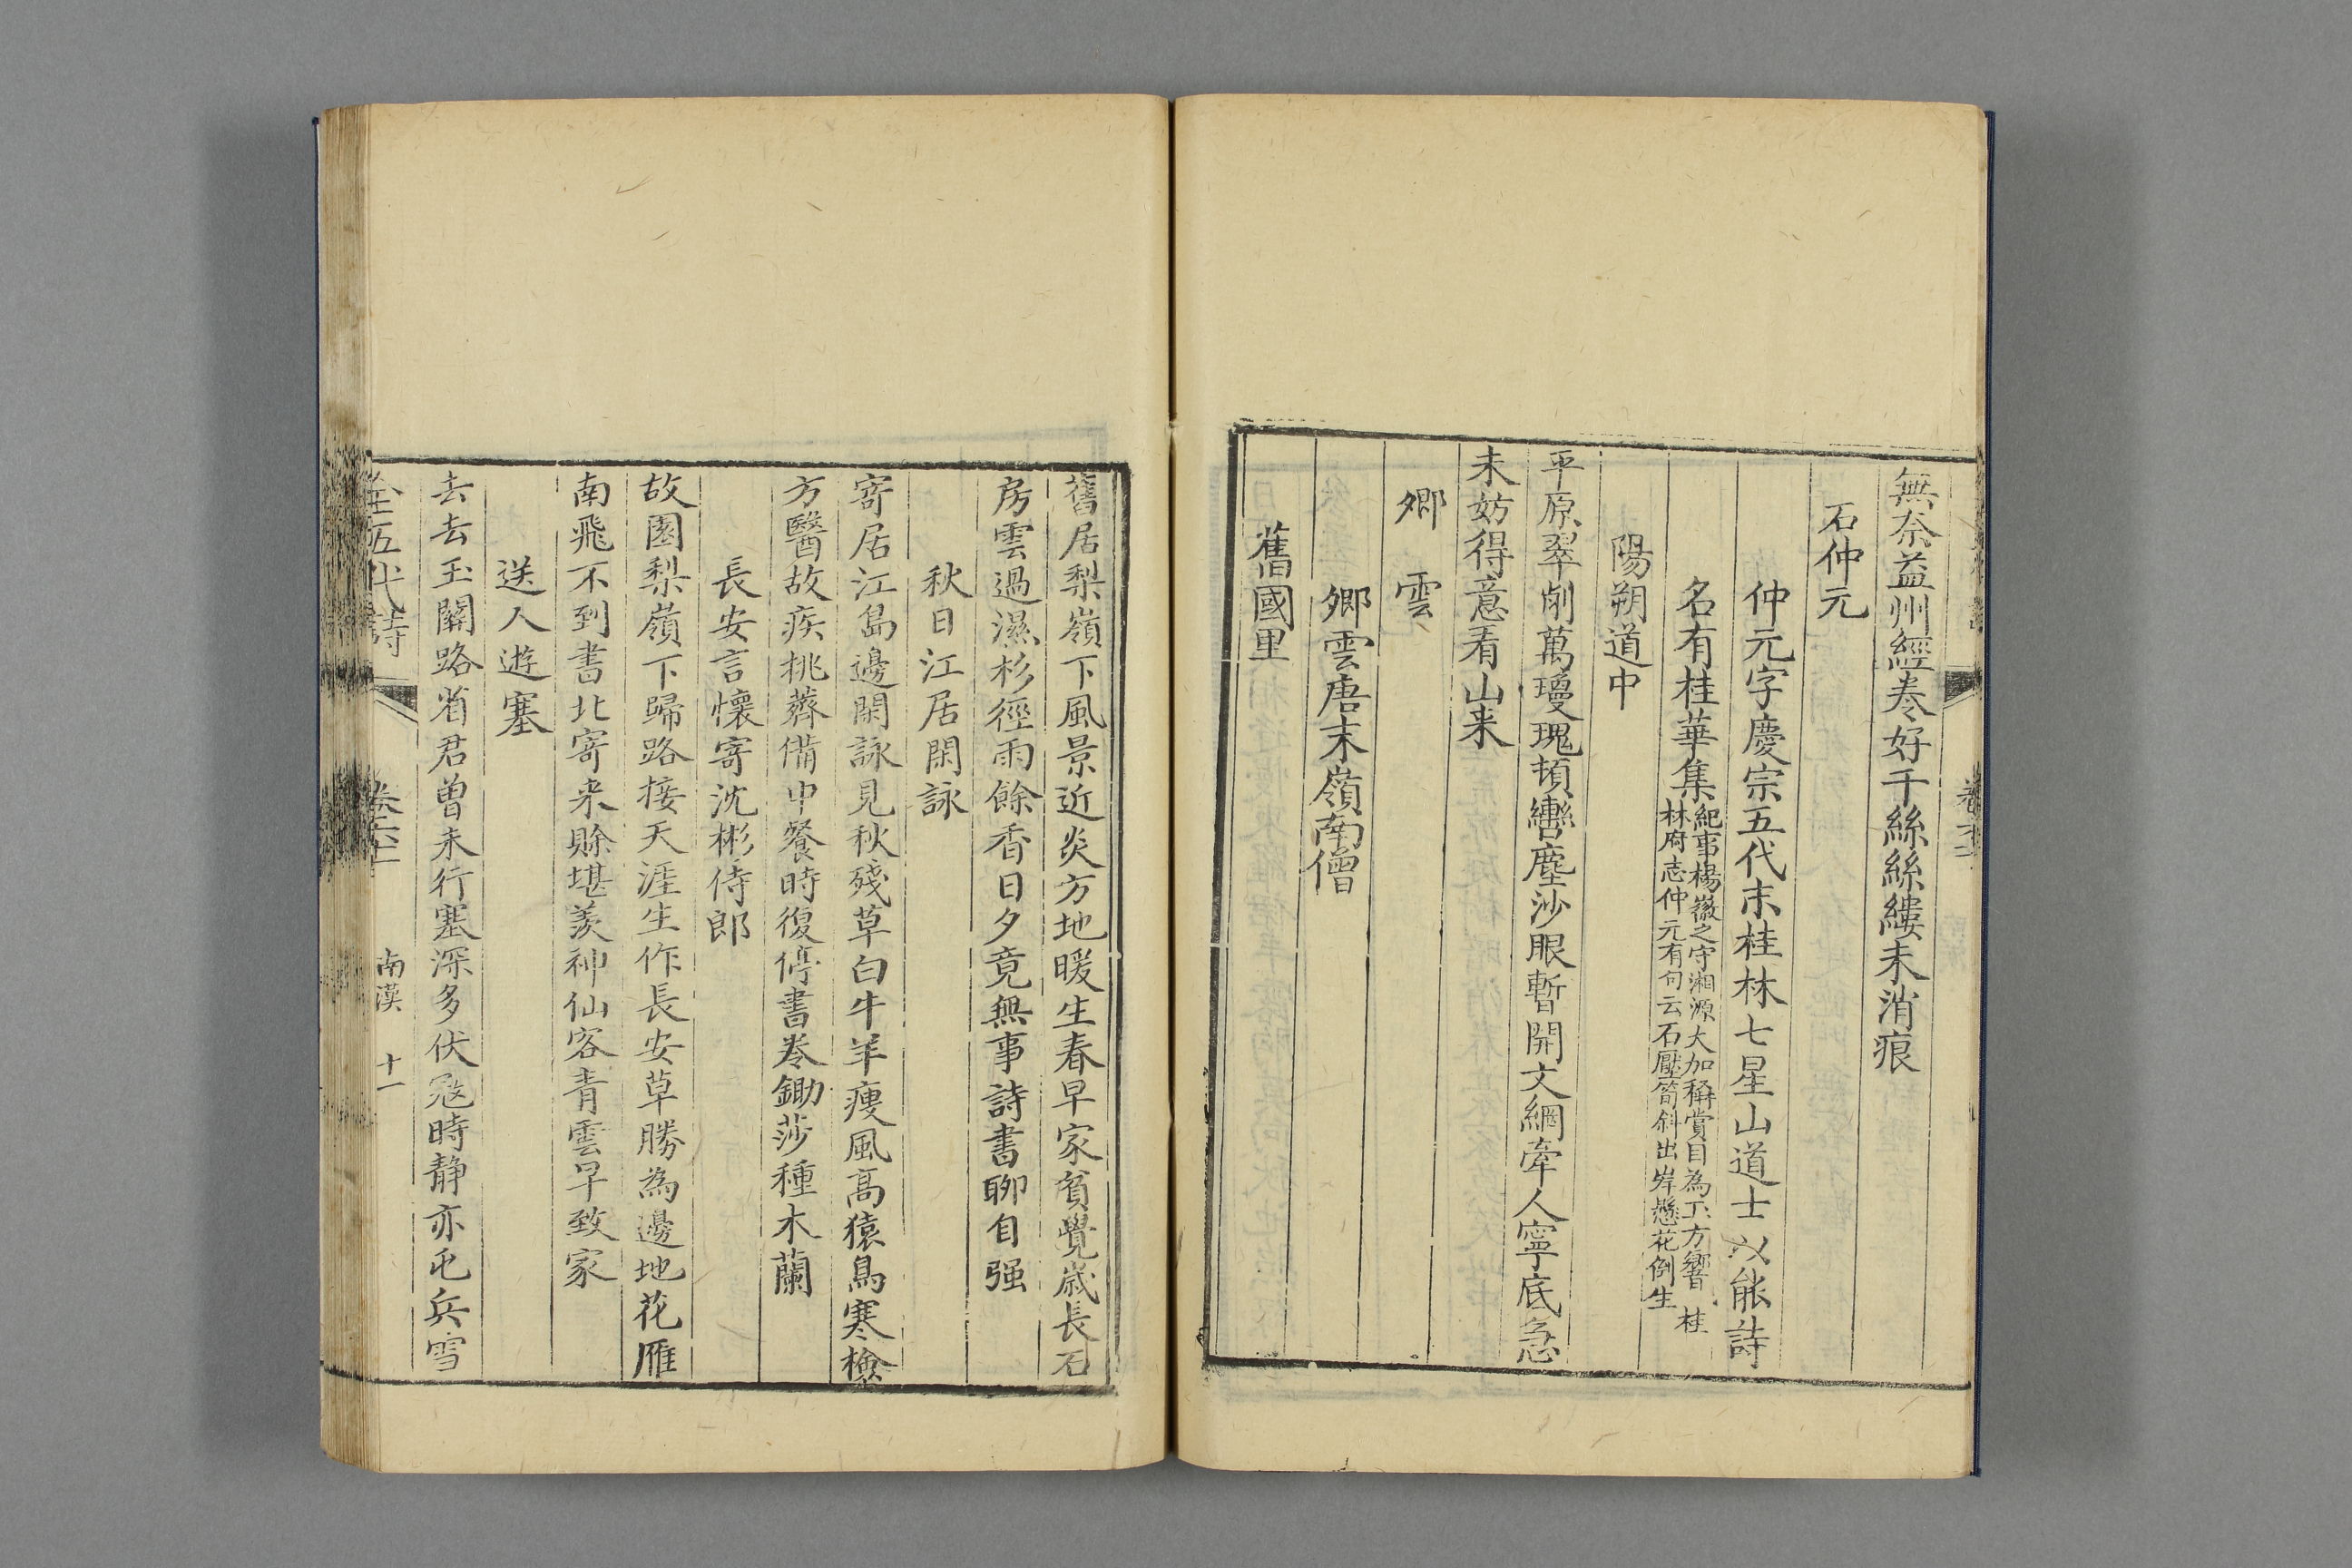 無奈益州經卷好千絲絲縷未消痕
石仲元
仲元字慶宗五代末桂林七星山道士以能詩
名有桂華集
紀事楊徽之守湘源大加稱賞目為工方響 桂
林府志仲元有句云石壓筍斜出岸懸花倒生
陽朔道中
平原翠削萬瓊瑰頓轡塵沙眼暫開文網牽人寧底急
未妨得意看山来
卿雲
卿雲唐末嶺南僧
舊國里
舊居梨嶺下風景近炎方地暖生春早家貧覺嵗長石
房雲過濕杉徑雨餘香日夕竟無事詩書聊自强
秋日江居閑詠
寄居江島邊閑詠見秋殘草白牛羊瘦風高猿鳥寒檢
方醫故疾挑薺備中餐時復停書卷鋤莎種木蘭
長安言懷寄沈彬侍郎
故園梨嶺下歸路接天涯生作長安草勝為邊地花雁
南飛不到書北寄来賒堪羡神仙客青雲早致家
送人遊塞
去去玉關路省君曾未行塞深多伏寇時静亦屯兵雪
全五代詩
南漢 十一